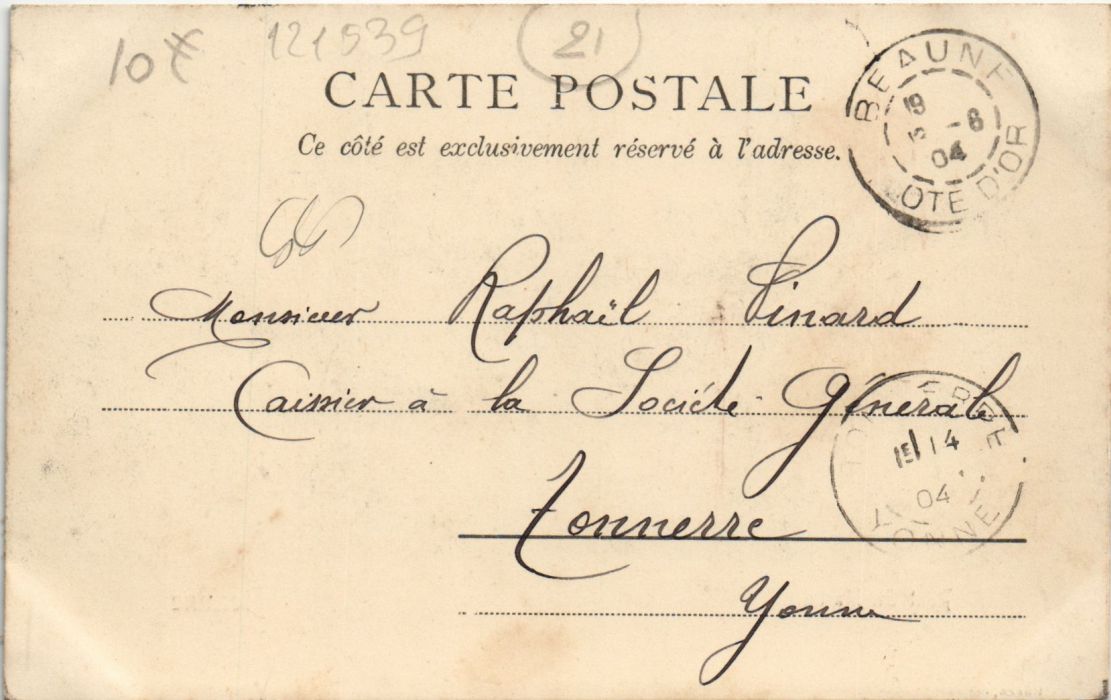 10€ 121539 21
CARTE POSTALE
Ce côté est exclusivement réservé à l'adresse.
BEAUNE
-6
04
COTE D'OR
Monsieur Raphaël Pinard
Caissier à la Société Générale
TONNERRE
1E 14
04
YONNE
Tonnerre
Yonne